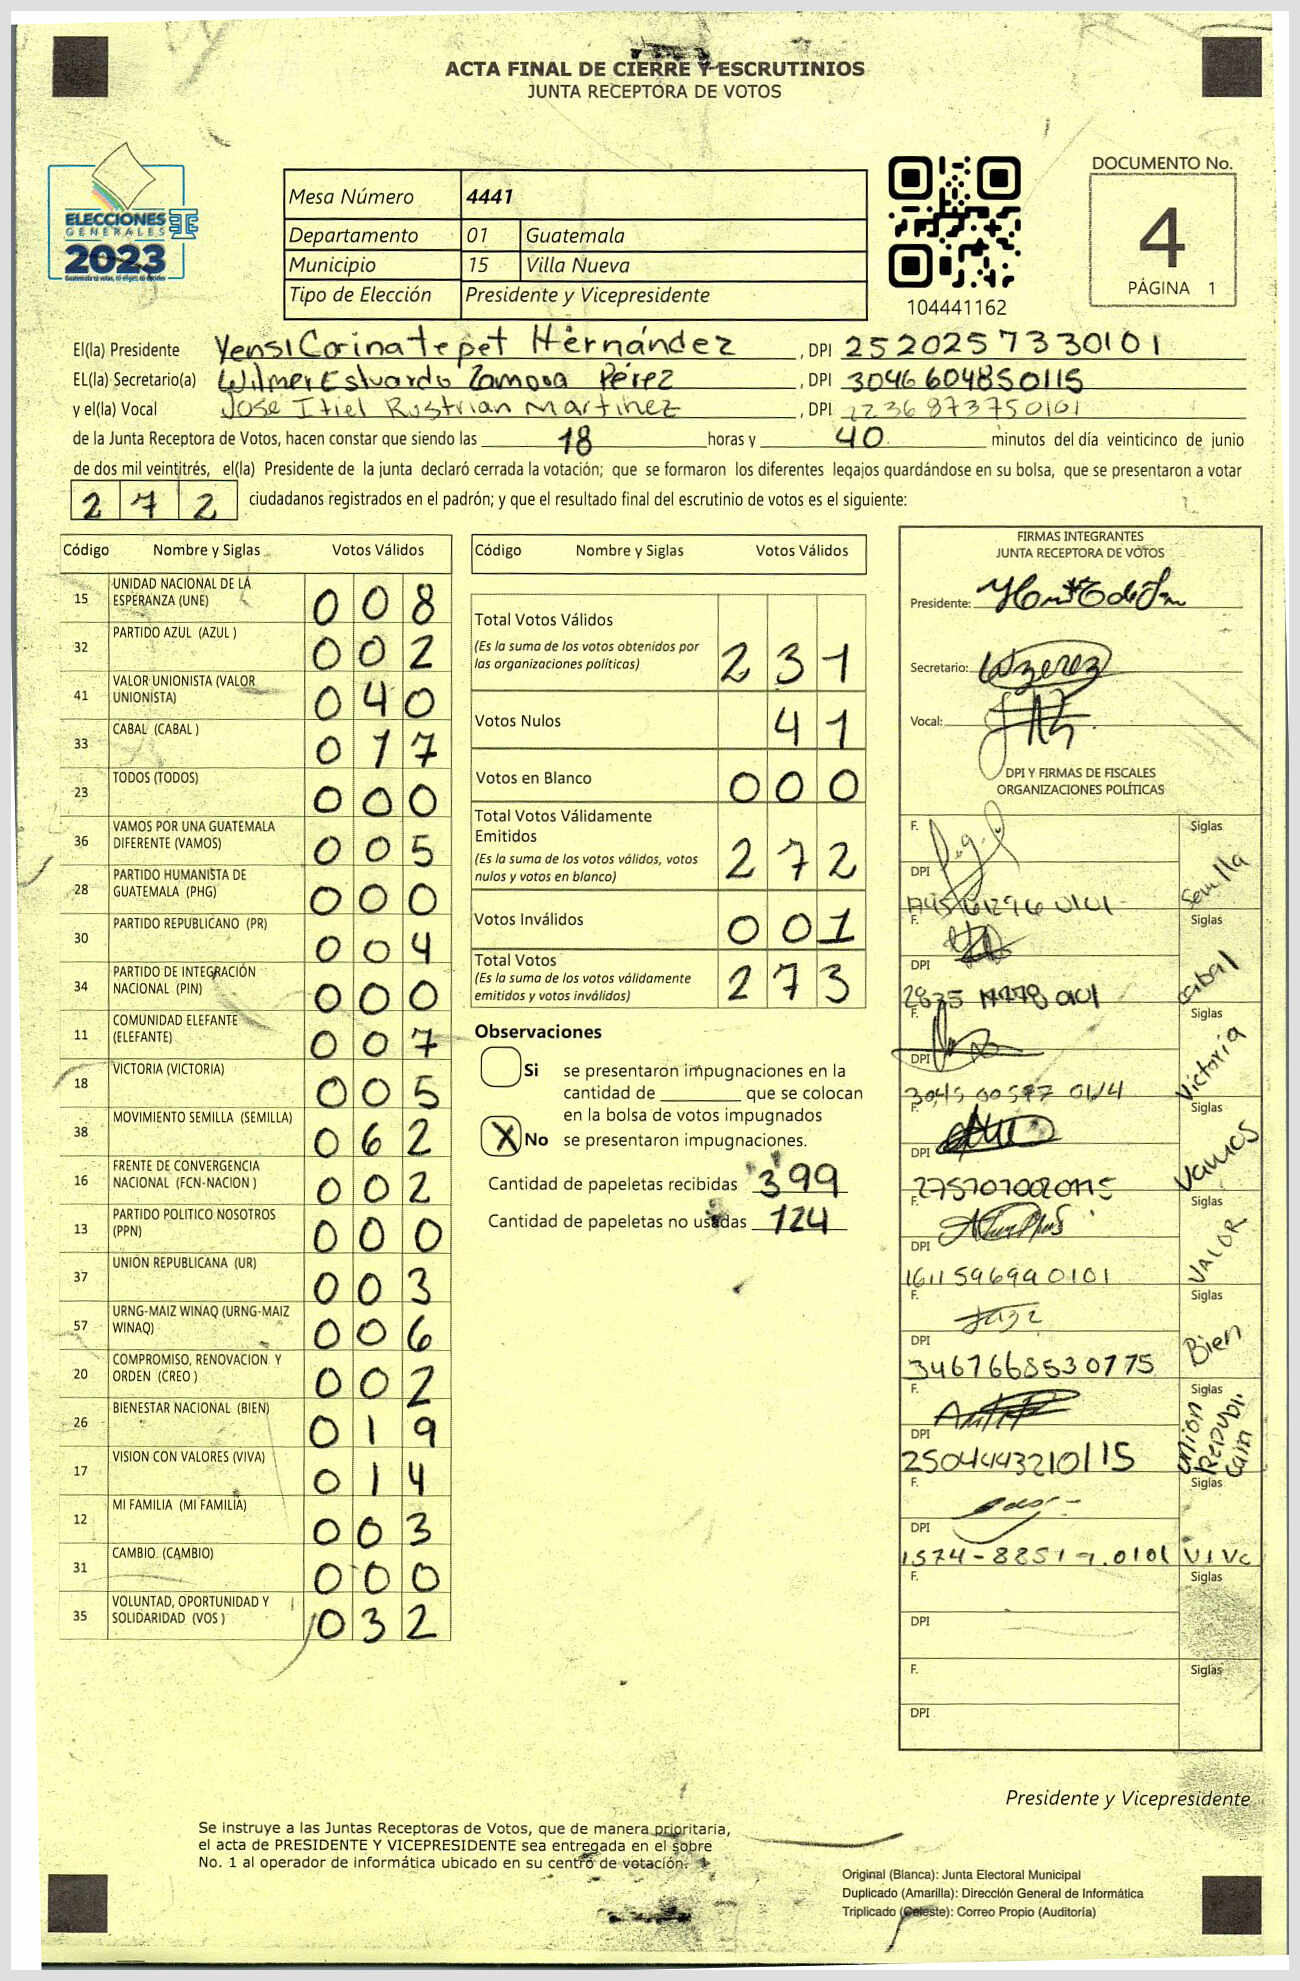 ACTA FINAL DE CIERRE Y ESCRUTINIOS
JUNTA RECEPTORA DE VOTOS
ELECCIONES
GENERALES
2023
Mesa Número 4441
Departamento 01 Guatemala
Municipio 15 Villa Nueva
Tipo de Elección Presidente y Vicepresidente
104441162
DOCUMENTO No.
4
PÁGINA 1
El(la) Presidente Yensi Corina tepet Hernández , DPI 2520257330101
EL(la) Secretario(a) Wilmer Estuardo Zamora Pérez , DPI 3046604850115
y el(la) Vocal Jose Itiel Rustrian Martinez , DPI 2236873750101
de la Junta Receptora de Votos, hacen constar que siendo las 18 horas y 40 minutos del día veinticinco de junio
de dos mil veintitrés, el(la) Presidente de la junta declaró cerrada la votación; que se formaron los diferentes legajos guardándose en su bolsa, que se presentaron a votar
272 ciudadanos registrados en el padrón; y que el resultado final del escrutinio de votos es el siguiente:
Código Nombre y Siglas Votos Válidos
15 UNIDAD NACIONAL DE LA ESPERANZA (UNE) 008
32 PARTIDO AZUL (AZUL ) 002
41 VALOR UNIONISTA (VALOR UNIONISTA) 040
33 CABAL (CABAL ) 017
23 TODOS (TODOS) 000
36 VAMOS POR UNA GUATEMALA DIFERENTE (VAMOS) 005
28 PARTIDO HUMANISTA DE GUATEMALA (PHG) 000
30 PARTIDO REPUBLICANO (PR) 004
34 PARTIDO DE INTEGRACIÓN NACIONAL (PIN) 000
11 COMUNIDAD ELEFANTE (ELEFANTE) 007
18 VICTORIA (VICTORIA) 005
38 MOVIMIENTO SEMILLA (SEMILLA) 062
16 FRENTE DE CONVERGENCIA NACIONAL (FCN-NACION ) 002
13 PARTIDO POLITICO NOSOTROS (PPN) 000
37 UNION REPUBLICANA (UR) 003
57 URNG-MAIZ WINAQ (URNG-MAIZ WINAQ) 006
20 COMPROMISO, RENOVACION Y ORDEN (CREO ) 002
26 BIENESTAR NACIONAL (BIEN) 019
17 VISION CON VALORES (VIVA) 014
12 MI FAMILIA (MI FAMILIA) 003
31 CAMBIO (CAMBIO) 000
35 VOLUNTAD, OPORTUNIDAD Y SOLIDARIDAD (VOS ) 032
Código Nombre y Siglas Votos Válidos
Total Votos Válidos 231
(Es la suma de los votos obtenidos por
las organizaciones políticas)
Votos Nulos 41
Votos en Blanco 000
Total Votos Válidamente
Emitidos 272
(Es la suma de los votos válidos, votos
nulos y votos en blanco)
Votos Inválidos 001
Total Votos 273
(Es la suma de los votos válidamente
emitidos y votos inválidos)
Observaciones
Si se presentaron impugnaciones en la
cantidad de ________ que se colocan
en la bolsa de votos impugnados
X No se presentaron impugnaciones.
Cantidad de papeletas recibidas 399
Cantidad de papeletas no usadas 124
FIRMAS INTEGRANTES
JUNTA RECEPTORA DE VOTOS
Presidente:
Secretario:
Vocal:
DPI Y FIRMAS DE FISCALES
ORGANIZACIONES POLÍTICAS
F. Siglas
DPI Semilla
F. Siglas
DPI Cabal
F. Siglas
DPI Victoria
F. Siglas
DPI 2757070020115 Vamos
F. Siglas
DPI 1611596990101 VALOR
F. Siglas
DPI 3467668530115 Bien
F. Siglas
DPI 2504443210115 Union Republicana
F. Siglas
DPI Viva
F. Siglas
DPI
F. Siglas
DPI
Presidente y Vicepresidente
Se instruye a las Juntas Receptoras de Votos, que de manera prioritaria,
el acta de PRESIDENTE Y VICEPRESIDENTE sea entregada en el sobre
No. 1 al operador de informática ubicado en su centro de votación.
Original (Blanca): Junta Electoral Municipal
Duplicado (Amarilla): Dirección General de Informática
Triplicado (Celeste): Correo Propio (Auditoría)